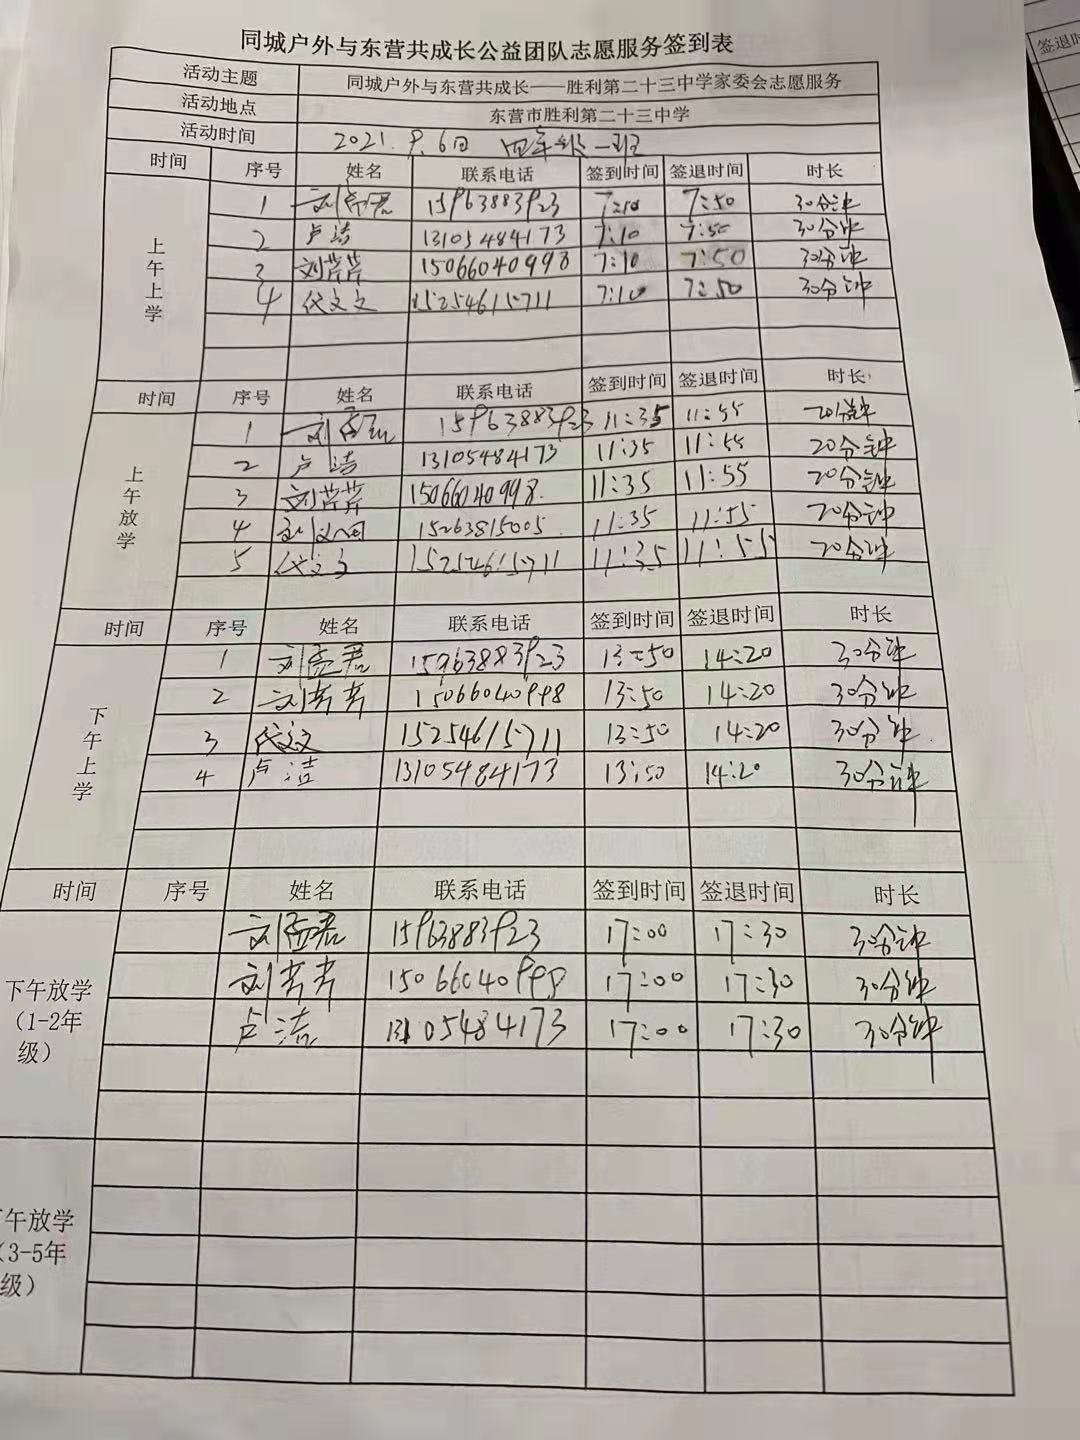 同城户外与东营共成长公益团队志愿服务签到表
活动主题 同城户外与东营共成长——胜利第二十三中学家委会志愿服务
活动地点 东营市胜利第二十三中学
活动时间 2021.9.6日 四年级一班
时间 序号 姓名 联系电话 签到时间 签退时间 时长
上午上学
1 刘 15963883923 7:10 7:50 30分钟
2 卢洁 13105484173 7:10 7:50 30分钟
3 刘芹芹 15066040998 7:10 7:50 30分钟
4 代文文 15254615711 7:10 7:50 30分钟
时间 序号 姓名 联系电话 签到时间 签退时间 时长
上午放学
1 刘 15963883923 11:35 11:55 20分钟
2 卢洁 13105484173 11:35 11:55 20分钟
3 刘芹芹 15066040998. 11:35 11:55 20分钟
4 15263815005 11:35 11:55 20分钟
5 代文文 15254615711 11:35 11:55 20分钟
时间 序号 姓名 联系电话 签到时间 签退时间 时长
下午上学
1 刘 15963883923 13:50 14:20 30分钟
2 刘芹芹 15066040998 13:50 14:20 30分钟
3 代文文 15254615711 13:50 14:20 30分钟
4 卢洁 13105484173 13:50 14:20 30分钟
时间 序号 姓名 联系电话 签到时间 签退时间 时长
下午放学
(1-2年
级)
刘 15963883923 17:00 17:30 30分钟
刘芹芹 15066040998 17:00 17:30 30分钟
卢洁 13105484173 17:00 17:30 30分钟
午放学
(3-5年
级)
签退时